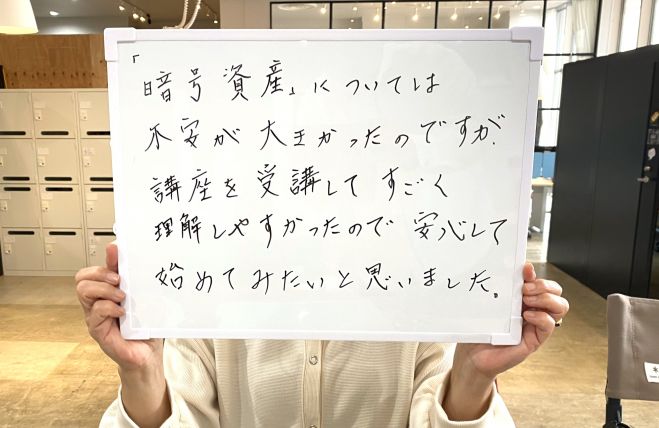 「暗号資産」については
不安が大きかったのですが、
講座を受講してすごく
理解しやすかったので安心して
始めてみたいと思いました。